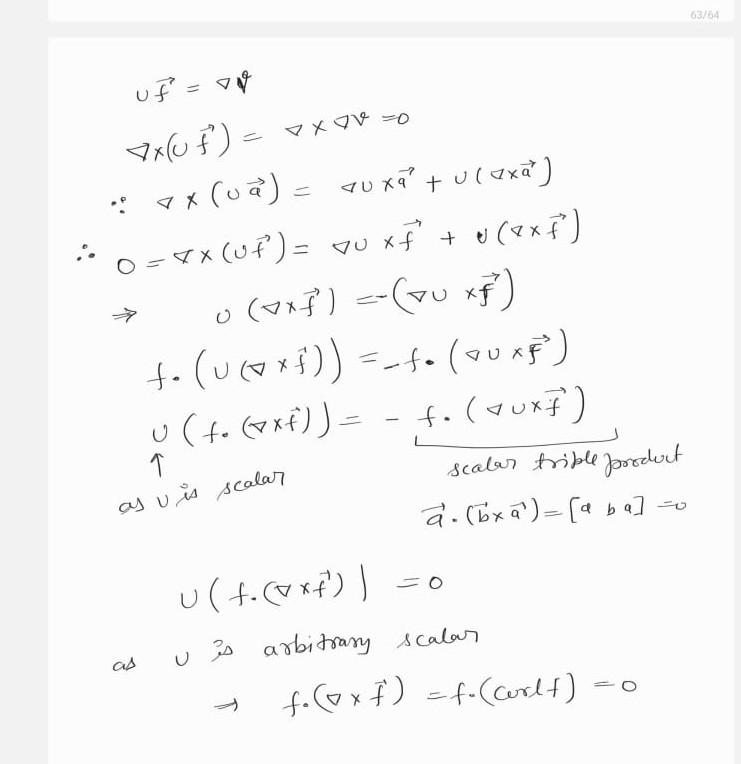 63/64
∪f⃗ = ∇v
∇×(∪f⃗) = ∇×∇v =0
∵ ∇×(∪a⃗) = ∇∪×a⃗ + ∪(∇×a⃗)
∴ 0 = ∇×(∪f⃗) = ∇∪×f⃗ + ∪(∇×f⃗)
⇒ ∪(∇×f⃗) = -(∇∪×f⃗)
f.(∪(∇×f⃗)) = -f.(∇∪×f⃗)
∪(f.(∇×f⃗)) = - f.(∇∪×f⃗)
↑
as ∪ is scalar
scalar trible product
a⃗.(b⃗×a⃗) = [a b a] =0
∪(f.(∇×f⃗)) =0
as ∪ is arbitrary scalar
⇒ f.(∇×f⃗) = f.(curlf) =0